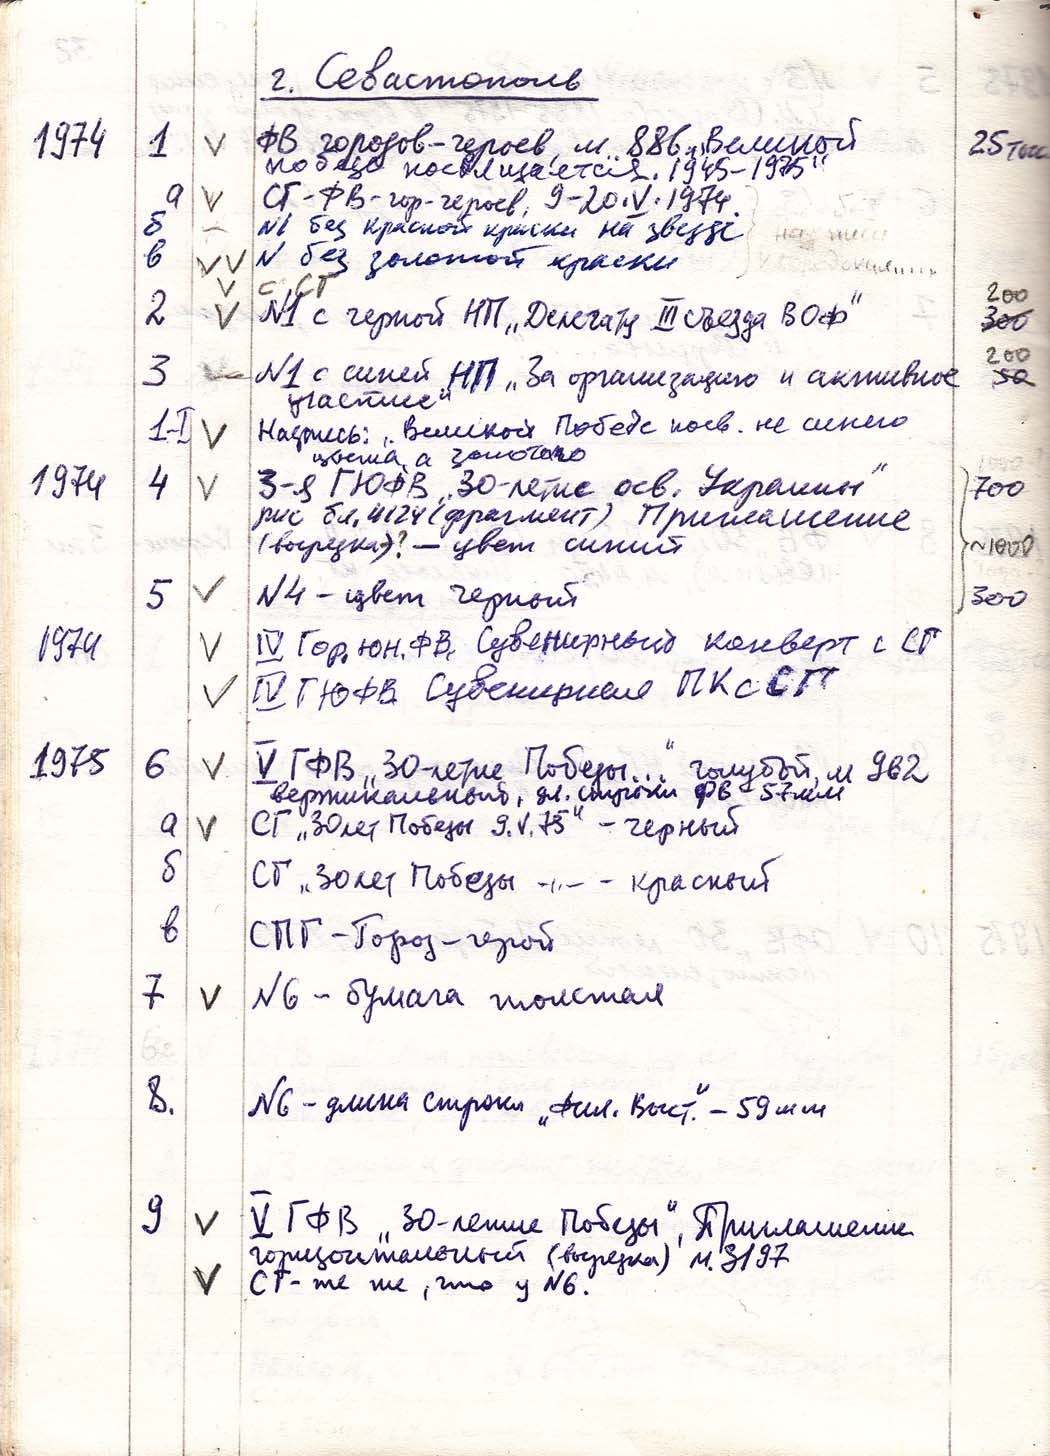 г. Севастополь
1974 1 V ФВ городов-героев, м. 886 „Великой 25 тыс.
победе посвящается. 1945-1975"
а V СГ-ФВ-гор-героев, 9-20.V.1974.
б — N1 без красной краски на звезде
в VV N без золотой краски
V с СГ 200
2 V N1 с черной НП „Делегату III съезда ВОФ" 300
200
3 — N1 с синей НП „За организацию и активное 50
участие"
1-I V Надпись: „Великой Победе посв. не синего
цвета, а золотого
1974 4 V 3-я ГЮФВ „30-летие осв. Украины" 700
рис бл. 4124 (фрагмент) Приглашение
(вырезка)? — цвет синий ~1000
5 V N4 - цвет черный 300
1974 V IV Гор. юн. ФВ. Сувенирный конверт с СГ
V IV ГЮФВ Сувенирная ПК с СГ
1975 6 V V ГФВ „30-летие Победы..." голубой, м 962
вертикальный, дл. строки ФВ - 57мм
а V СГ „30 лет Победы 9.V.75" - черный
б СГ „30 лет Победы -"- - красный
в СПГ - Город-герой
7 V N6 - бумага толстая
8. N6 - длина строки „Фил. Выст." - 59 мм
9 V V ГФВ „30-летие Победы", Приглашение
горизонтальный (вырезка) м. 3197
V СГ- те же, что у N6.